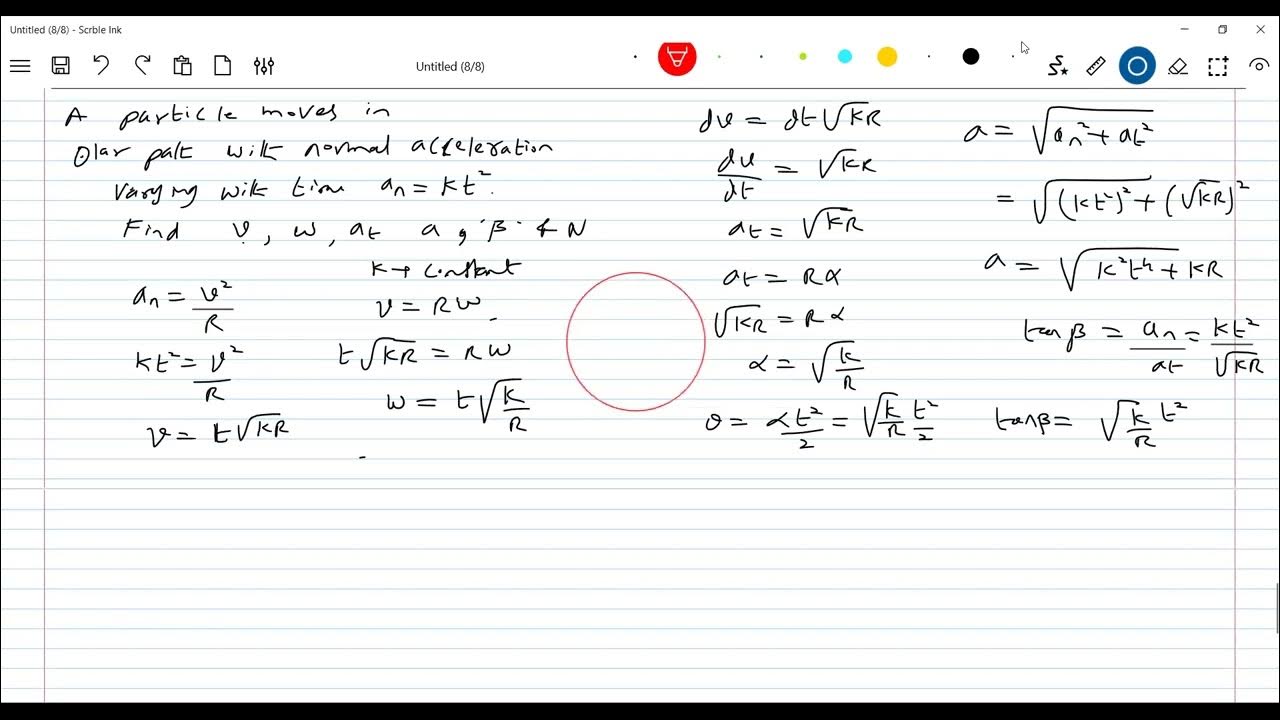 Untitled (8/8) - Scrble Ink
Untitled (8/8)
A particle moves in
Olar path with normal acceleration
varying with time an = kt².
Find v, w, at a, β & N
k → constant
an = v²/R
kt² = v²/R
v = t√KR
v = RW
t√KR = RW
w = t√K/R
dv = dt√KR
dv/dt = √KR
at = √KR
at = Rα
√KR = Rα
α = √K/R
θ = αt²/2 = √K/R t²/2
a = √an² + at²
= √(kt²)² + (√KR)²
a = √K²t⁴ + KR
tanβ = an/at = kt²/√KR
tanβ = √K/R t²